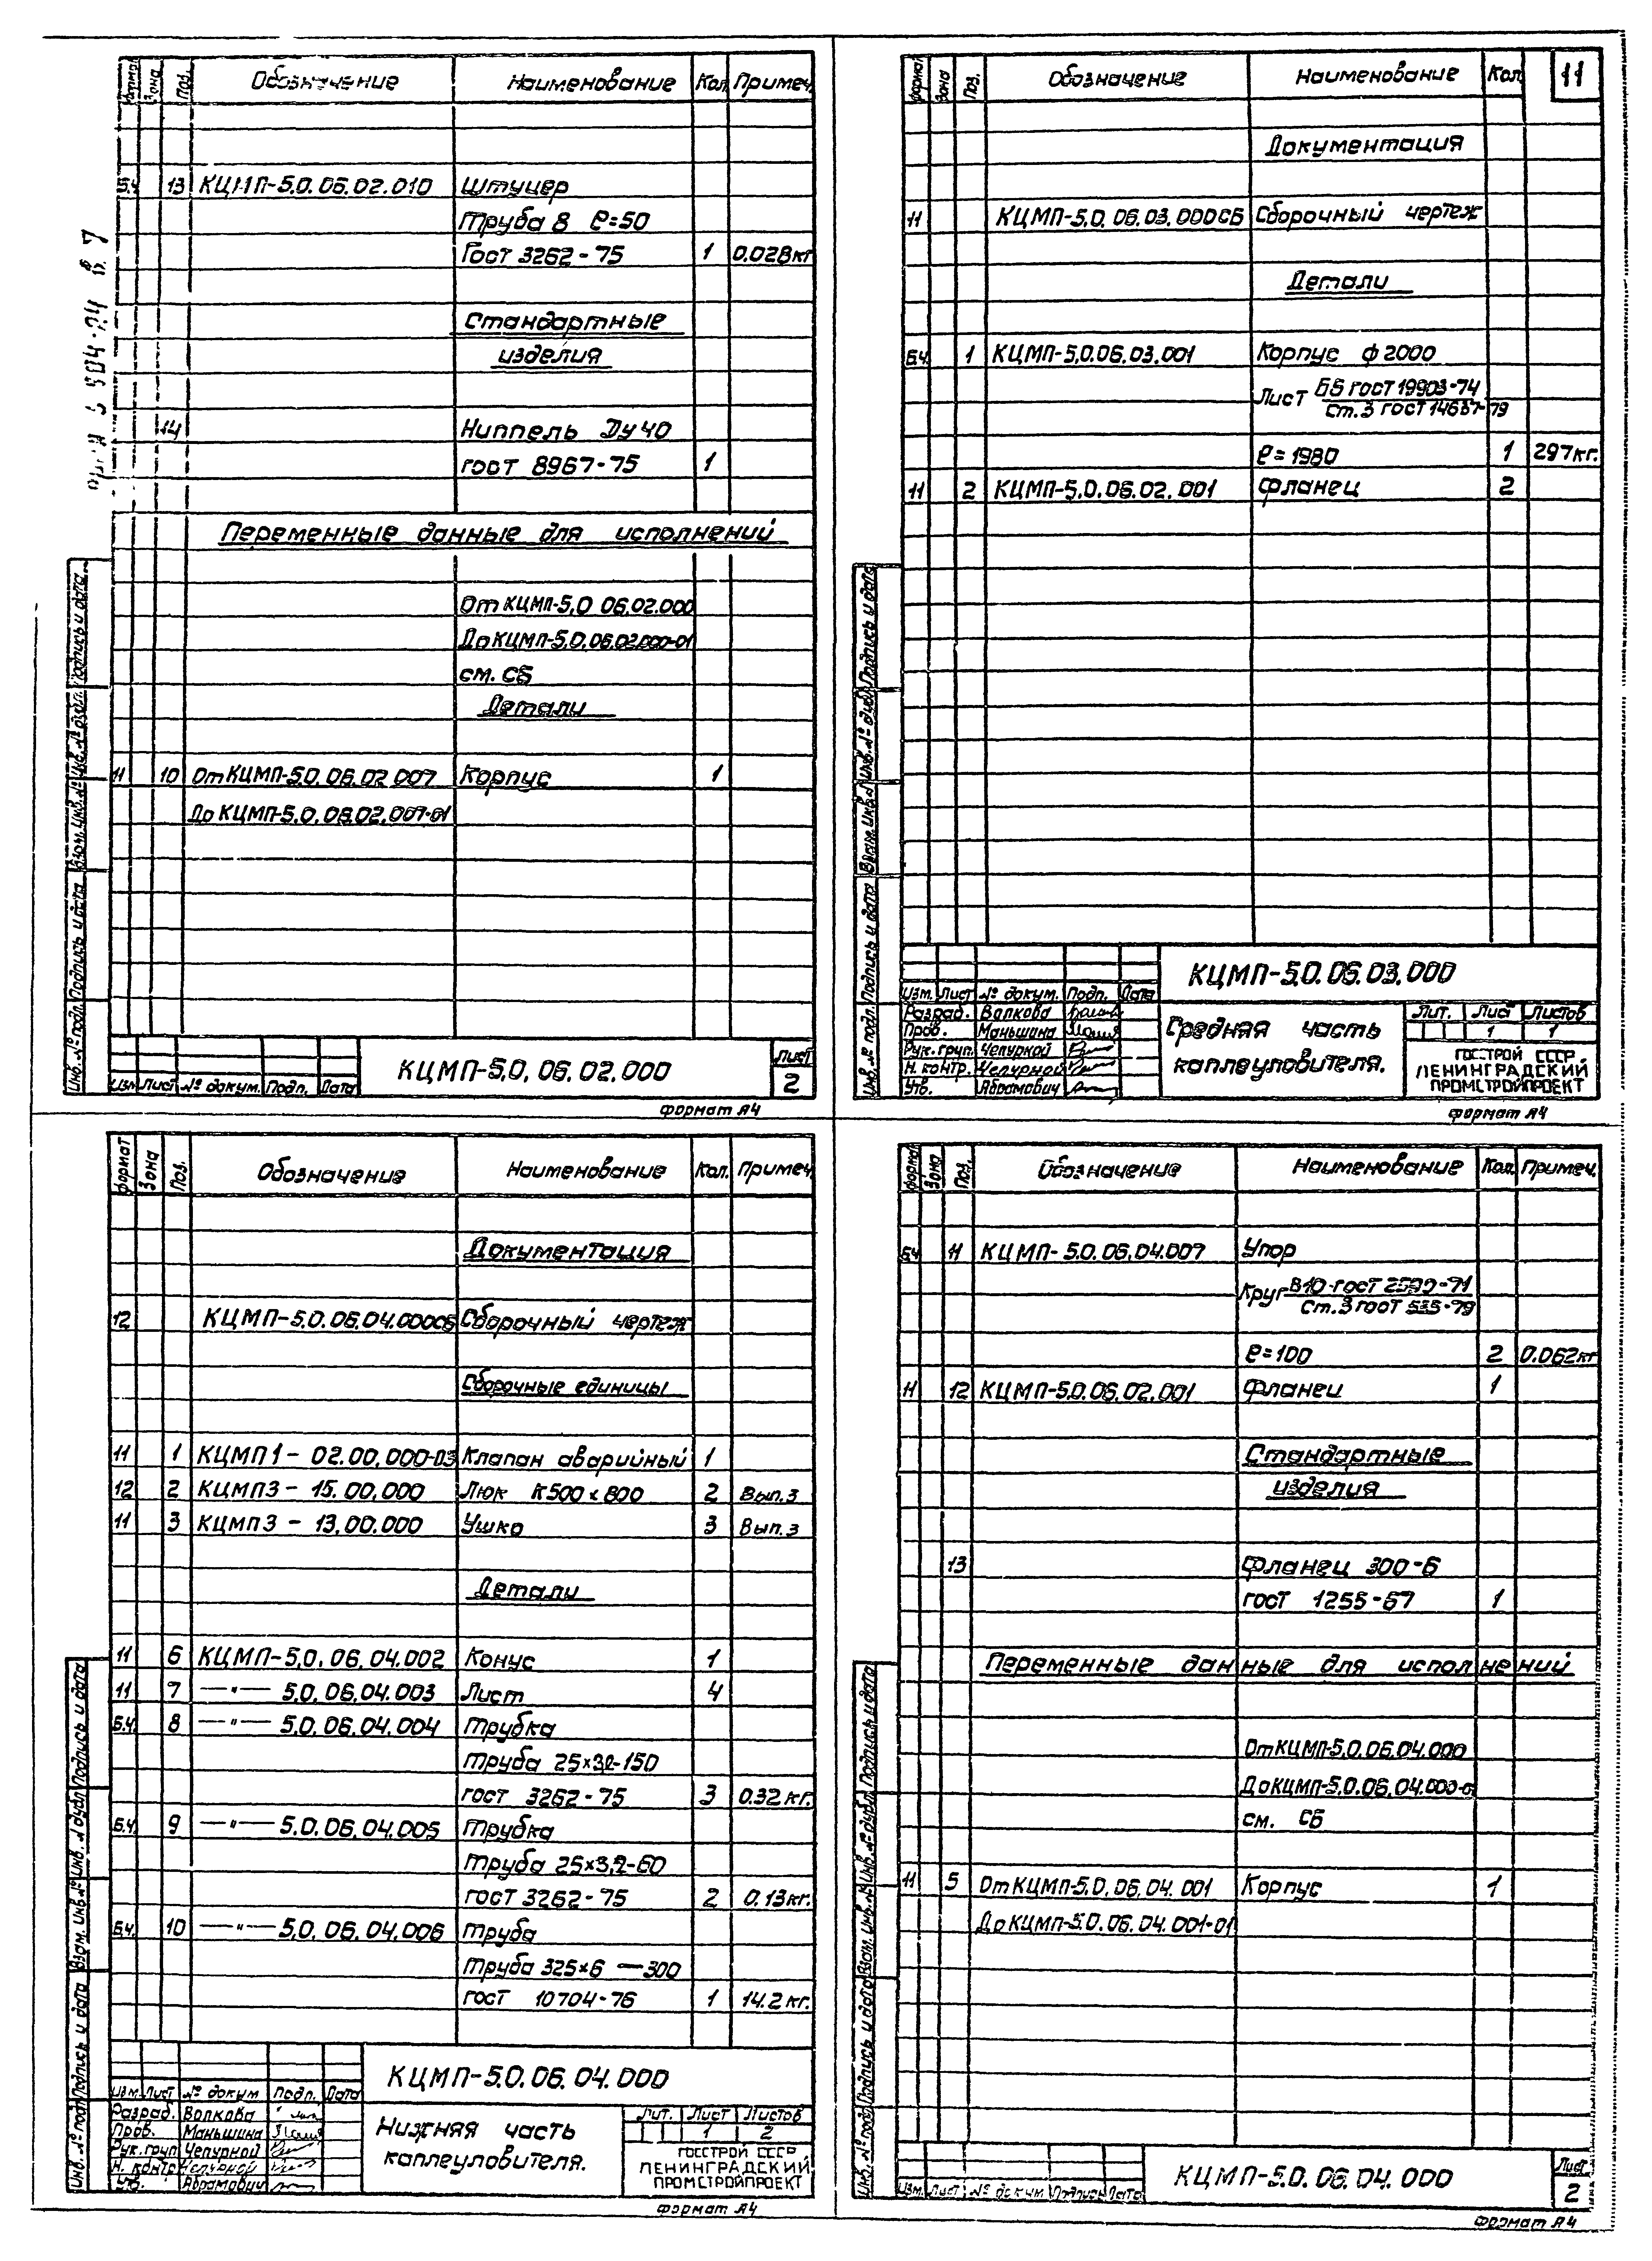 Формат Зона Поз. Обозначение Наименование Кол. Примеч.
Б.4 13 КЦМП-5.0.06.02.010 Штуцер
Труба 8 ℓ=50
Гост 3262-75 1 0.028кг
Стандартные
изделия
14 Ниппель Ду 40
гост 8967-75 1
Переменные данные для исполнений
От КЦМП-5.0 06.02.000
До КЦМП-5.0.06.02.000-01
см. СБ
Детали
11 10 От КЦМП-5.0.06.02.007 Корпус 1
До КЦМП-5.0.06.02.007-01
Изм. Лист № докум. Подп. Дата
КЦМП-5.0.06.02.000
Лист
2
Формат А4
Инв. № подл. Подпись и дата Взам. Инв. № Инв. № дубл. Подпись и дата
Формат Зона Поз. Обозначение Наименование Кол. 11
Документация
11 КЦМП-5.0.06.03.000СБ Сборочный чертеж
Детали
Б.4 1 КЦМП-5.0.06.03.001 Корпус ф 2000
Лист Б5 гост 19903-74
Ст.3 гост 14637-79
ℓ=1980 1 297кг.
11 2 КЦМП-5.0.06.02.001 Фланец 2
КЦМП-5.0.06.03.000
Изм. Лист № докум. Подп. Дата
Разраб. Волкова
Пров. Маньшина
Рук. груп. Чепурной
Н. контр. Чепурной
Утв. Абрамович
Средняя часть
каплеуловителя.
Лит. Лист Листов
1 1
ГОССТРОЙ СССР
ЛЕНИНГРАДСКИЙ
ПРОМСТРОЙПРОЕКТ
Формат А4
Инв. № подл. Подпись и дата Взам. Инв. № Инв. № дубл. Подпись и дата
Формат Зона Поз. Обозначение Наименование Кол. Примеч.
Документация
12 КЦМП-5.0.06.04.000СБ Сборочный чертеж
Сборочные единицы
11 1 КЦМП1-02.00.000-03 Клапан аварийный 1
12 2 КЦМП3-15.00.000 Люк К500х800 2 Вып.3
11 3 КЦМП3-13.00.000 Ушко 3 Вып.3
Детали
11 6 КЦМП-5.0.06.04.002 Конус 1
11 7 —"— 5.0.06.04.003 Лист 4
Б.4. 8 —"— 5.0.06.04.004 Трубка
Труба 25×3.2-150
гост 3262-75 3 0.32кг.
Б.4. 9 —"— 5.0.06.04.005 Трубка
Труба 25×3.2-60
гост 3262-75 2 0.13кг.
Б.4. 10 —"— 5.0.06.04.006 Труба
Труба 325×6 —300
гост 10704-76 1 14.2кг.
КЦМП-5.0.06.04.000
Изм. Лист № докум Подп. Дата
Разраб. Волкова
Пров. Маньшина
Рук. груп Чепурной
Н. контр Чепурной
Утв. Абрамович
Нижняя часть
каплеуловителя.
Лит. Лист Листов
1 2
ГОССТРОЙ СССР
ЛЕНИНГРАДСКИЙ
ПРОМСТРОЙПРОЕКТ
Формат А4
Инв. № подл Подпись и дата Взам. Инв. № Инв. № дубл Подпись и дата
Формат Зона Поз. Обозначение Наименование Кол. Примеч.
Б.4 11 КЦМП-5.0.06.04.007 Упор
Круг В10-гост 2590-71
Ст.3 гост 535-79
ℓ=100 2 0.062кг
11 12 КЦМП-5.0.06.02.001 Фланец 1
Стандартные
изделия
13 Фланец 300-6
гост 1255-67 1
Переменные данные для исполнений
От КЦМП-5.0.06.04.000
До КЦМП-5.0.06.04.000-01
см. СБ
11 5 От КЦМП-5.0.06.04.001 Корпус 1
До КЦМП-5.0.06.04.001-01
Изм. Лист № докум Подпись Дата
КЦМП-5.0.06.04.000
Лист
2
Формат А4
Инв. № подл Подпись и дата Взам. Инв. № Инв. № дубл. Подпись и дата